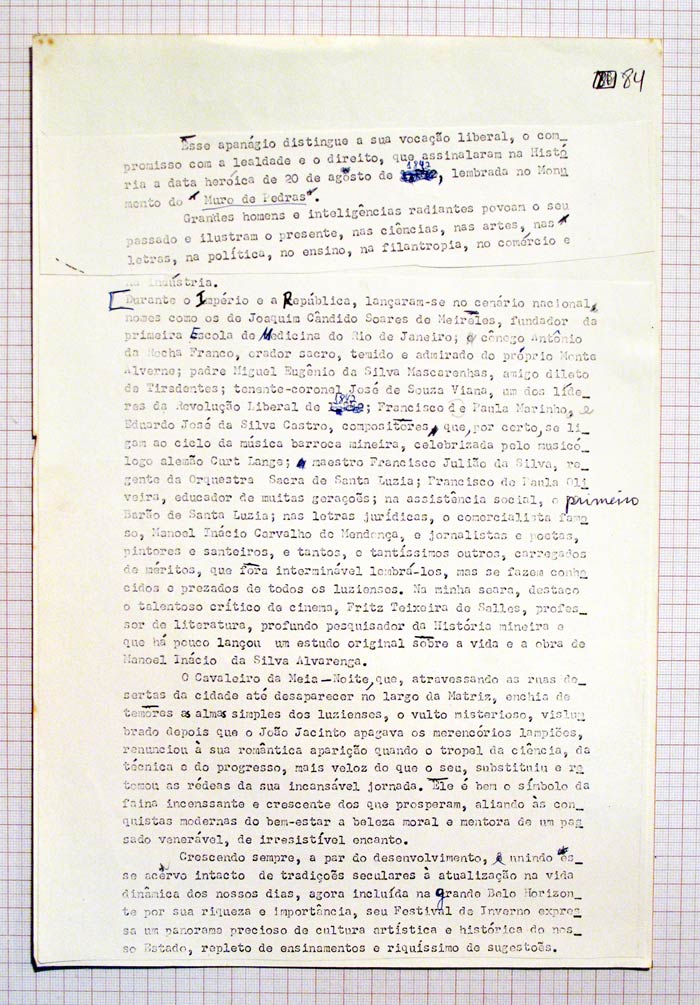 84
Esse apanágio distingue a sua vocação liberal, o com_
promisso com a lealdade e o direito, que assinalaram na Histó
ria a data heróica de 20 de agôsto de 1842, lembrada no Monu
mento do "Muro de Pedras".
Grandes homens e inteligências radiantes povoam o seu
passado e ilustram o presente, nas ciências, nas artes, nas
letras, na política, no ensino, na filantropia, no comércio e
na indústria.
[Durante o Império e a República, lançaram-se no cenário nacional
nomes como os de Joaquim Cândido Soares de Meireles, fundador da
primeira Escola de Medicina do Rio de Janeiro; cônego Antônio
da Rocha Franco, orador sacro, temido e admirado do próprio Monte
Alverne; padre Miguel Eugênio da Silva Mascarenhas, amigo dileto
de Tiradentes; tenente-coronel José de Souza Viana, um dos líde_
res da Revolução Liberal de 1842; Francisco de Paula Marinho, e
Eduardo José da Silva Castro, compositores, que, por certo, se li_
gam ao ciclo da música barroca mineira, celebrizada pelo musicó_
logo alemão Curt Lange; maestro Francisco Julião da Silva, re_
gente da Orquestra Sacra de Santa Luzia; Francisco de Paula Oli_
veira, educador de muitas gerações; na assistência social, o primeiro
Barão de Santa Luzia; nas letras jurídicas, o comercialista famo_
so, Manoel Inácio Carvalho de Mendonça, e jornalistas e poetas,
pintores e santeiros, e tantos, e tantíssimos outros, carregados
de méritos, que fora interminável lembrá-los, mas se fazem conhe_
cidos e prezados de todos os luzienses. Na minha seara, destaco
o talentoso crítico de cinema, Fritz Teixeira de Salles, profes_
sor de literatura, profundo pesquisador da História mineira e
que há pouco lançou um estudo original sobre a vida e a obra de
Manoel Inácio da Silva Alvarenga.
O Cavaleiro da Meia-Noite, que, atravessando as ruas de_
sertas da cidade até desaparecer no largo da Matriz, enchia de
temores as almas simples dos luzienses, o vulto misterioso, vislum_
brado depois que o João Jacinto apagava os merencórios lampiões,
renunciou à sua romântica aparição quando o tropel da ciência, da
técnica e do progresso, mais veloz do que o seu, substituiu e re_
tomou as rédeas da sua incansável jornada. Ele é bem o símbolo da
faina incenssante e crescente dos que prosperam, aliando às con_
quistas modernas do bem-estar a beleza moral e mentora de um pas_
sado venerável, de irresistível encanto.
Crescendo sempre, a par do desenvolvimento, e unindo es_
se acervo intacto de tradições seculares à atualização na vida
dinâmica dos nossos dias, agora incluída na grande Belo Horizon_
te por sua riqueza e importância, seu Festival de Inverno expres_
sa um panorama precioso de cultura artística e histórica do nos_
so Estado, repleto de ensinamentos e riquíssimo de sugestões.